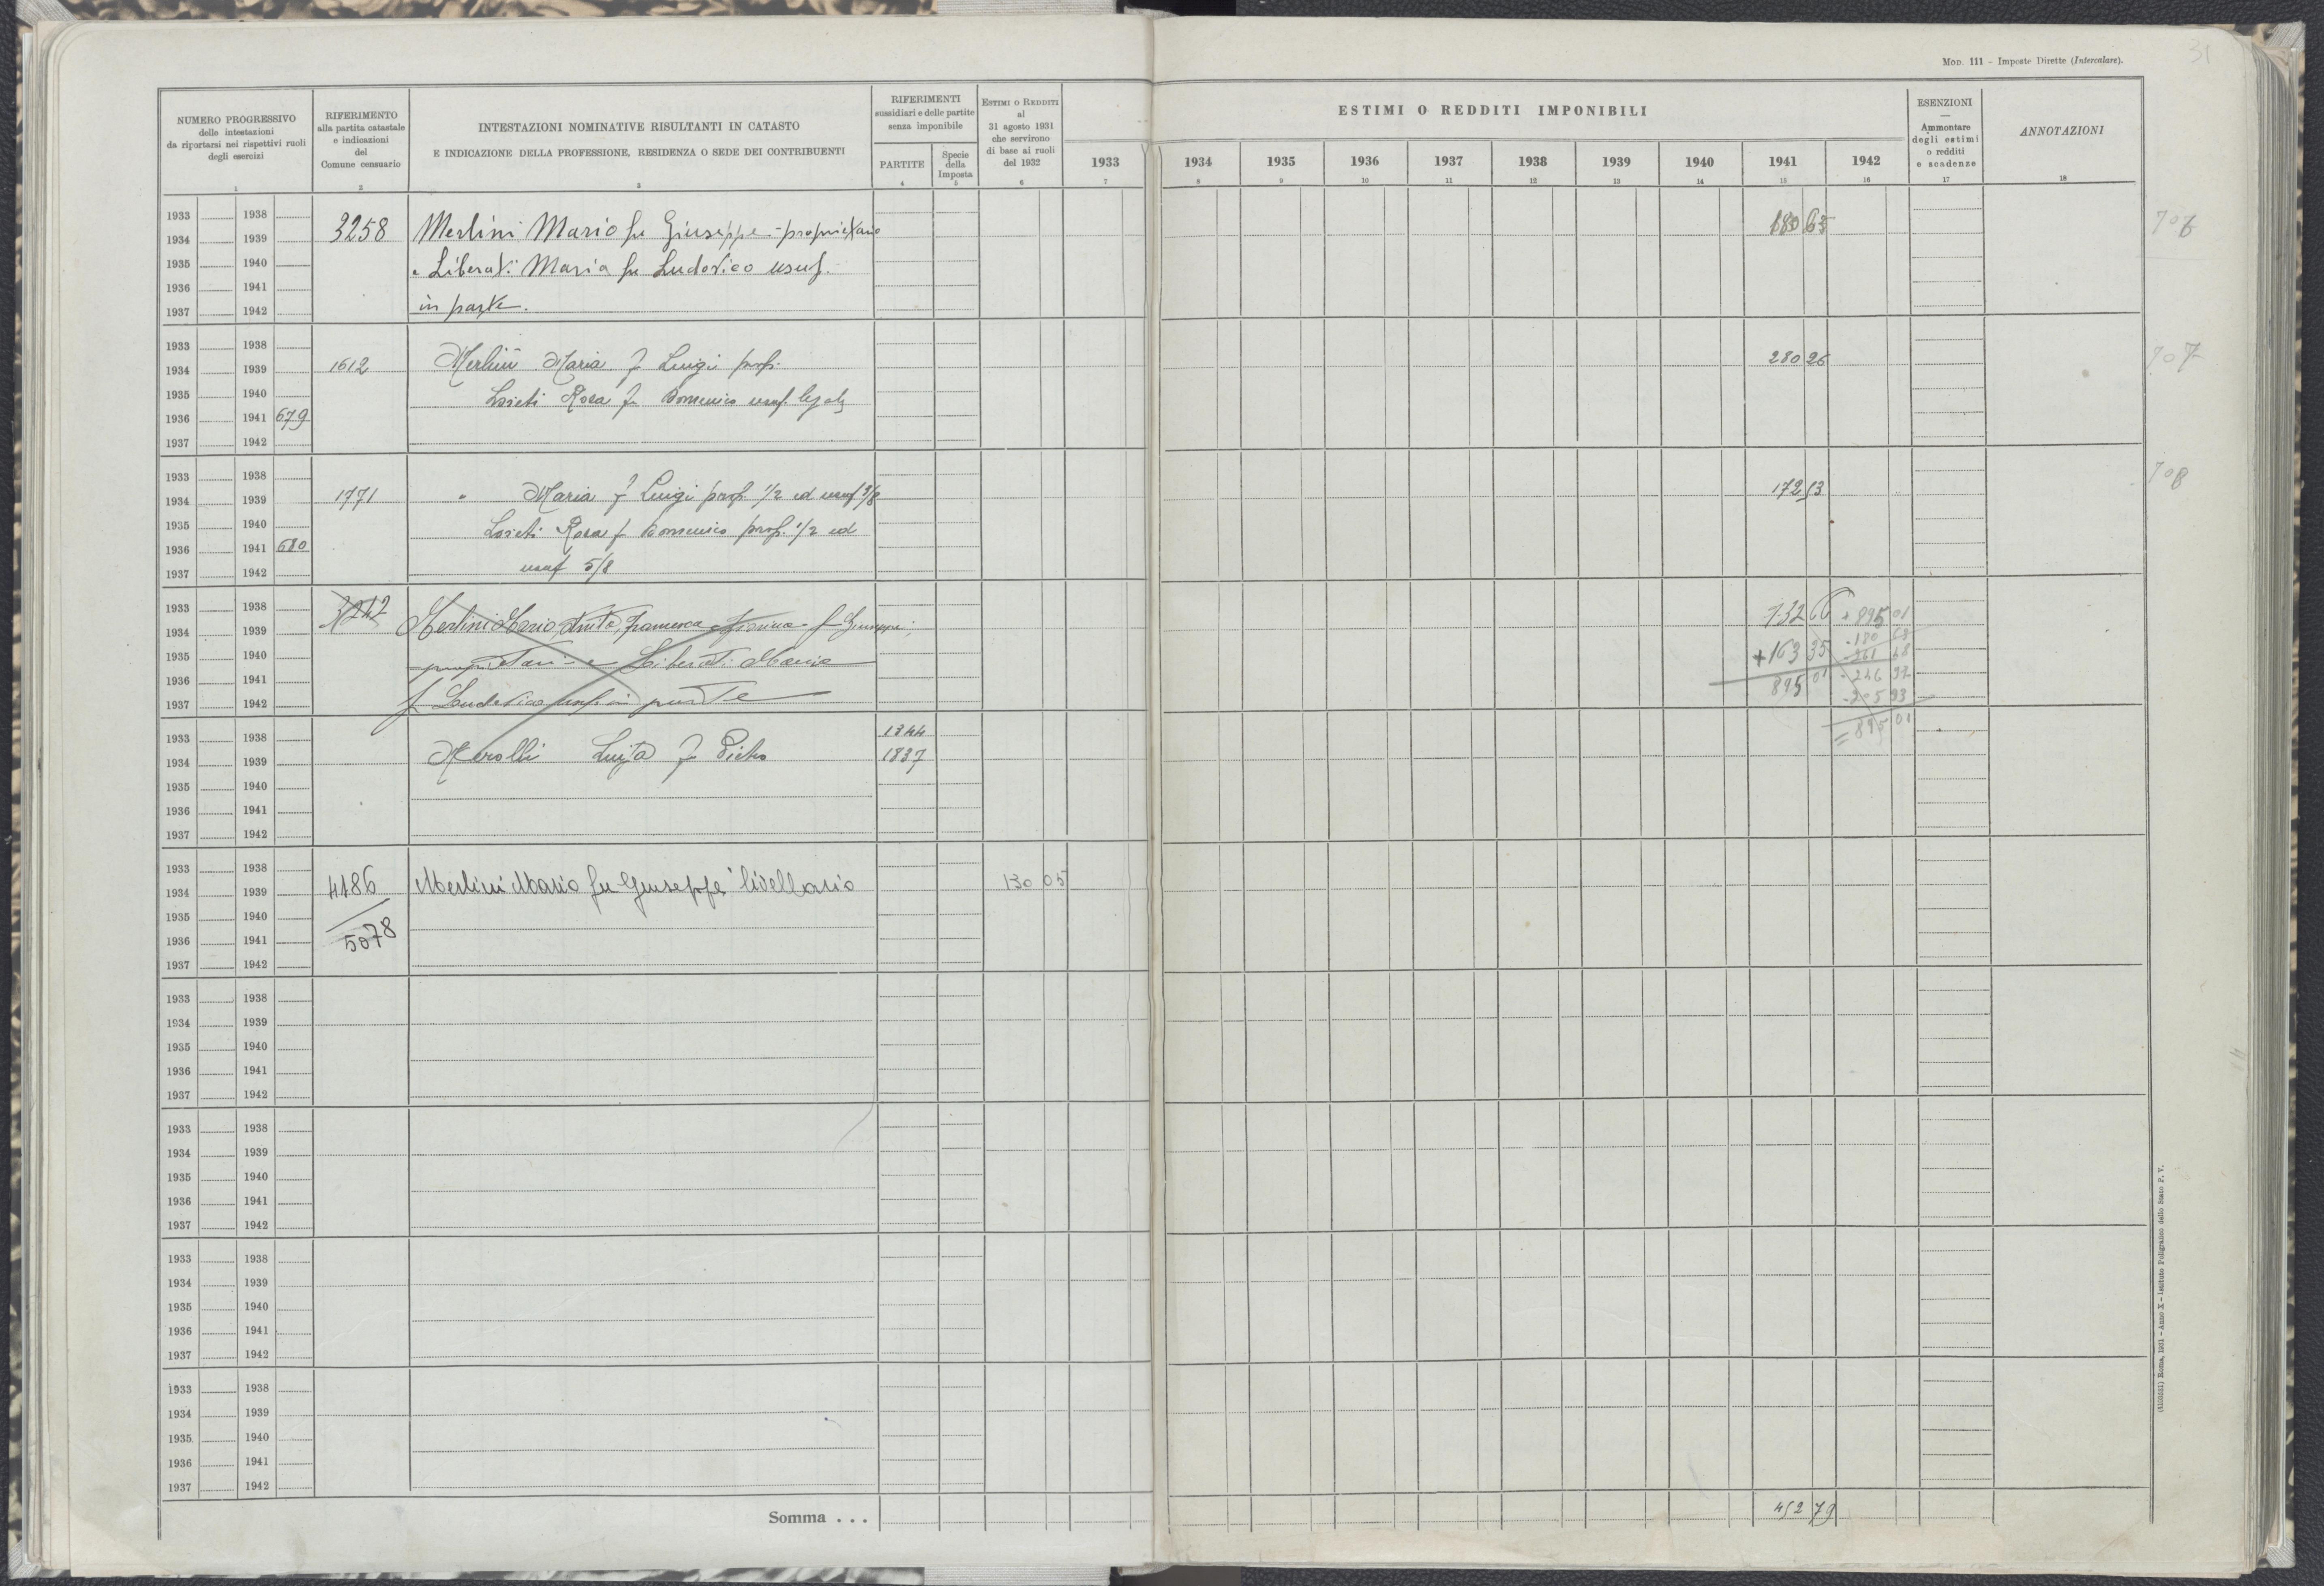 31
MOD. 111 - Imposte Dirette (Intercalare).
NUMERO PROGRESSIVO
delle intestazioni
da riportarsi nei rispettivi ruoli
degli esercizi
1
RIFERIMENTO
alla partita catastale
e indicazioni
del
Comune censuario
2
INTESTAZIONI NOMINATIVE RISULTANTI IN CATASTO
E INDICAZIONE DELLA PROFESSIONE, RESIDENZA O SEDE DEI CONTRIBUENTI
3
RIFERIMENTI
sussidiari e delle partite
senza imponibile
PARTITE
4
Specie
della
Imposta
5
ESTIMI O REDDITI
al
31 agosto 1931
che servirono
di base ai ruoli
del 1932
6
ESTIMI O REDDITI IMPONIBILI
1933 1934 1935 1936 1937 1938 1939 1940 1941 1942
7 8 9 10 11 12 13 14 15 16
ESENZIONI
—
Ammontare
degli estimi
o redditi
e scadenze
17
ANNOTAZIONI
18
1933 1938
1934 1939 3258 Merlini Mario fu Giuseppe - proprietario 180 63 706
1935 1940 e Liberati Maria fu Ludovico usuf.
1936 1941 in parte.
1937 1942
1933 1938
1934 1939 1612 Merlini Maria f Luigi prop. 280 26 707
1935 1940 Loreti Rosa fu Domenico usuf. legale
1936 1941 679
1937 1942
1933 1938
1934 1939 1771 " Maria f Luigi prop. 1/2 ed usuf 3/8 172 53 708
1935 1940 Loreti Rosa f Domenico prop. 1/2 ed
1936 1941 680 usuf 5/8
1937 1942
1933 1938 3242 732 66 + 895 01
1934 1939 Merlini Mario, Anita, Francesca f Giuseppe - 180
1935 1940 proprietari - e Liberati Maria + 163 35 - 261 68
1936 1941 895 01 - 246
1937 1942 f Ludovico usuf. in parte
= 895 01
1933 1938 1344
1934 1939 Merolli Luigia f Pietro 1837
1935 1940
1936 1941
1937 1942
1933 1938
1934 1939 4186 Merlini Mario fu Giuseppe livellario 130 05
1935 1940
1936 1941 5078
1937 1942
1933 1938
1934 1939
1935 1940
1936 1941
1937 1942
1933 1938
1934 1939
1935 1940
1936 1941
1937 1942
1933 1938
1934 1939
1935 1940
1936 1941
1937 1942
1933 1938
1934 1939
1935 1940
1936 1941
1937 1942
Somma . . . 452 79
Roma, 1931 - Anno X - Istituto Poligrafico dello Stato P. V.